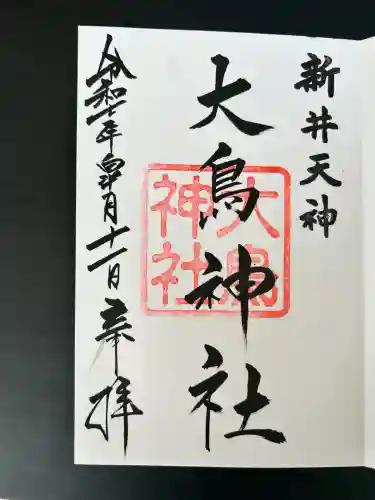 新井天神
大鳥神社
大鳥
神社
令和七年皐月十一日奉拝